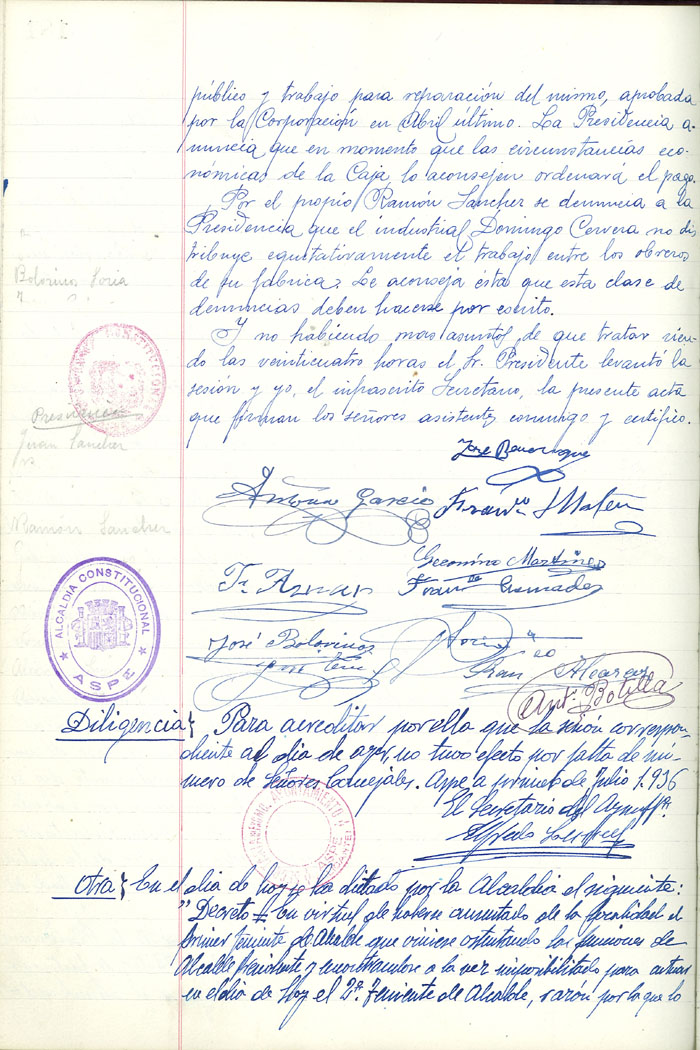 público y trabajo para reparación del mismo, aprobada
por la Corporación en Abril último. La Presidencia a-
nuncia que en momento que las circunstancias eco-
nómicas de la Caja lo aconsejen ordenará el pago.
Por el propio Ramón Sanchez se denuncia a la
Presidencia que el industrial Domingo Cervera no dis
tribuye equitativamente el trabajo entre los obreros
de su fábrica. Le aconseja ésta que esta clase de
denuncias deben hacerse por escrito.
Y no habiendo mas asuntos de que tratar sien-
do las veinticuatro horas el Sr. Presidente levantó la
sesión y yo, el infrascrito Secretario, la presente acta
que firman los señores asistentes conmigo y certifico.
Bolorinos Soria
Presidencia
Juan Sanchez
Ramon Sanchez
Antonio Garcia
Geronimo Martinez
Fr. Aznar
José Bolorinos
Fran Alcaraz
Ant. Botella
ALCALDIA CONSTITUCIONAL
ASPE
Diligencia} Para acreditar por ella que la sesión correspon-
diente al dia de ayer, no tuvo efecto por falta de nú-
mero de Señores Concejales. Aspe a primero de Julio 1.936
El Secretario del Ayuntº.
AYUNTAMIENTO
ASPE
Otra} En el dia de hoy se ha dictado por la Alcaldia el siguiente:
"Decreto = En virtud de haberse ausentado de la localidad el
primer Teniente de Alcalde que viniese ostentando las funciones de
Alcalde Presidente y encontrandose a la vez imposibilitado para actuar
en el dia de hoy el 2º. Teniente de Alcalde, razón por la que lo